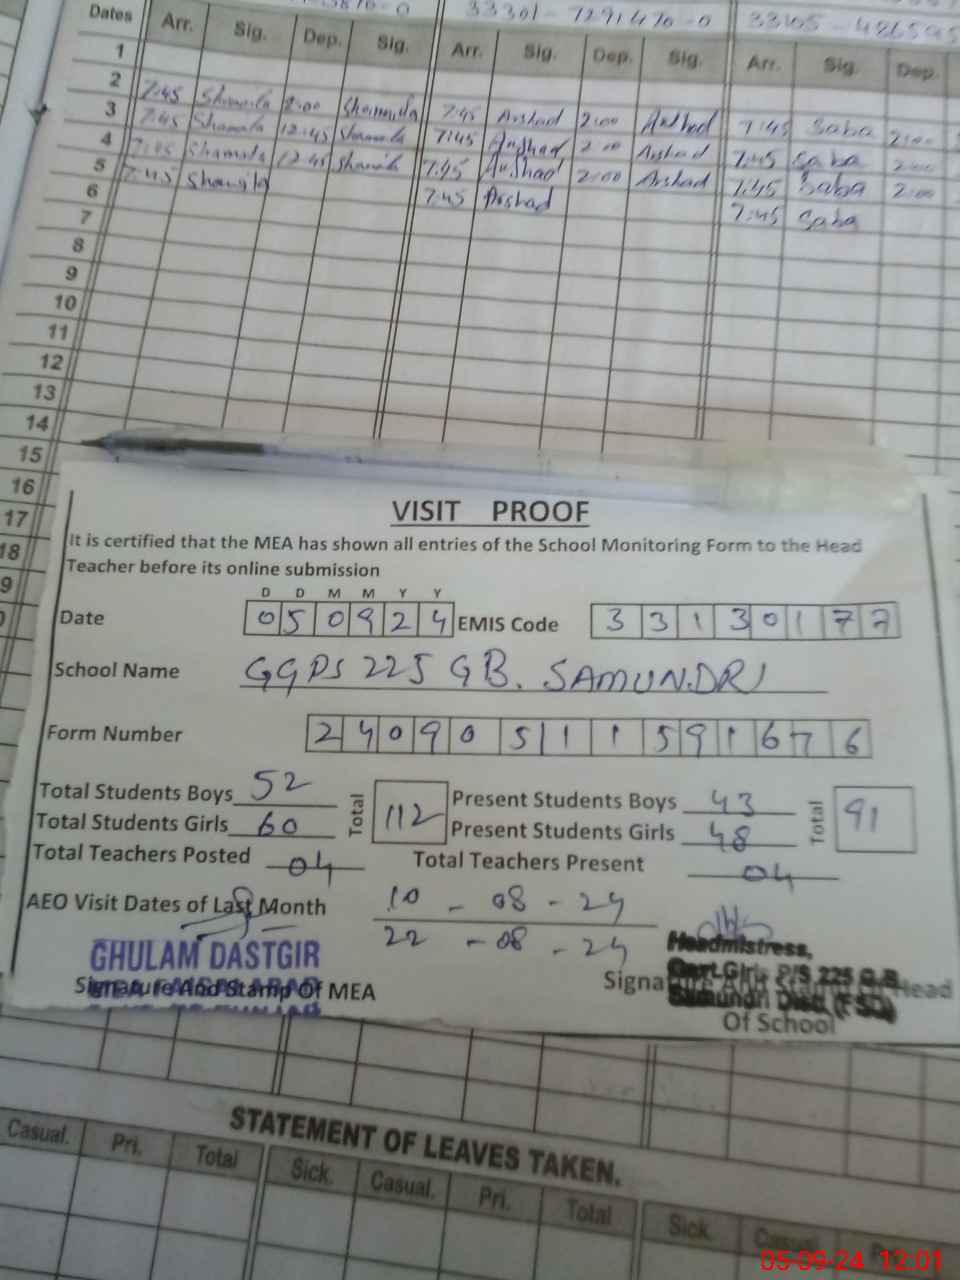 33301-7291470-0
Dates Arr. Sig. Dep. Sig. Arr. Sig. Dep. Sig. Arr. Sig. Dep.
1
2 7:45 Shamila 2:00 Shamila 7:45 Arshad 2:00 Arshad 7:45 Saba 2:00
3 7:45 Shamila 12:45 Shamila 7:45 Arshad 2:00 Arshad 7:45 Saba 2:00
4 7:45 Shamila 12:45 Shamila 7:45 Arshad 2:00 Arshad 7:45 Saba 2:00
5 7:45 Shamila 7:45 Arshad 7:45 Saba
6
7
8
9
10
11
12
13
14
15
16
17
18
VISIT PROOF
It is certified that the MEA has shown all entries of the School Monitoring Form to the Head
Teacher before its online submission
D D M M Y Y
Date 050924 EMIS Code 33130177
School Name GGPS 225 GB. SAMUNDRI
Form Number 24090511591676
Total Students Boys 52 Total 112 Present Students Boys 43 Total 91
Total Students Girls 60 Present Students Girls 48
Total Teachers Posted 04 Total Teachers Present 04
AEO Visit Dates of Last Month 10-08-24
22-08-24
GHULAM DASTGIR
Signature And Stamp Of MEA
Headmistress,
Govt. Girls P/S 225 G.B
Samundri Distt. (FSD)
Signature And Stamp Of Head
Of School
STATEMENT OF LEAVES TAKEN.
Casual. Pri. Total Sick. Casual. Pri. Total Sick Casual
05-09-24 12:01